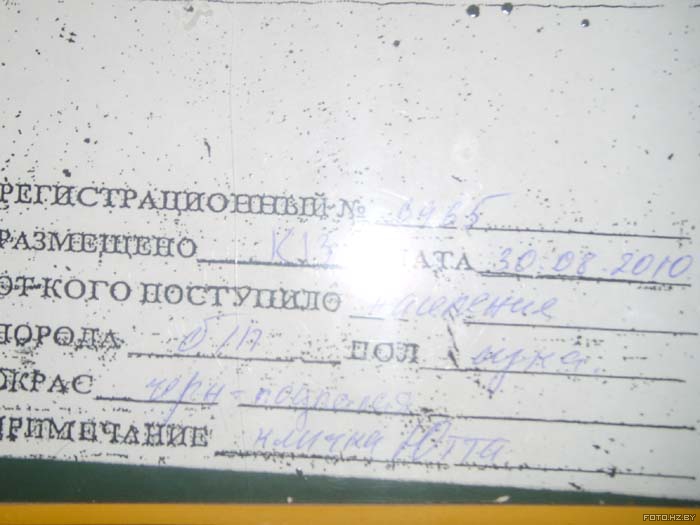 РЕГИСТРАЦИОННЫЙ №
РАЗМЕЩЕНО К13 АТА 30.08.2010
ОТ КОГО ПОСТУПИЛО население
ПОРОДА б/п ПОЛ сука.
ОКРАС черн-подпалая
ПРИМЕЧАНИЕ кличка Ютта
FOTO.HZ.BY